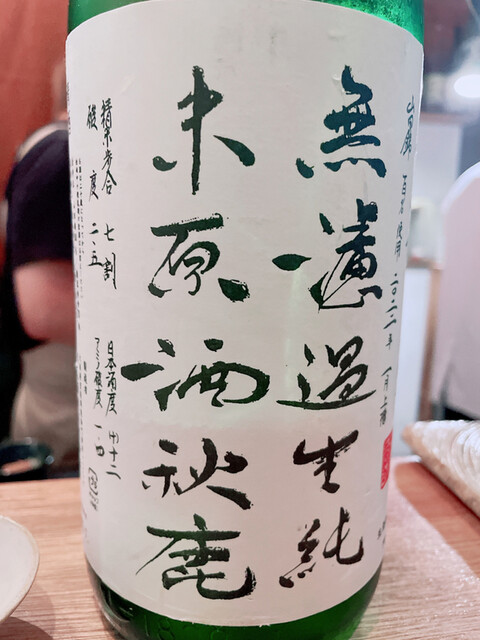 山田錦 百％使用 二〇二二年 一月上槽
無濾過生純
米原酒秋鹿
精米歩合 七割
酸度 二・五
日本酒度 中十二
アミノ酸度 一・四